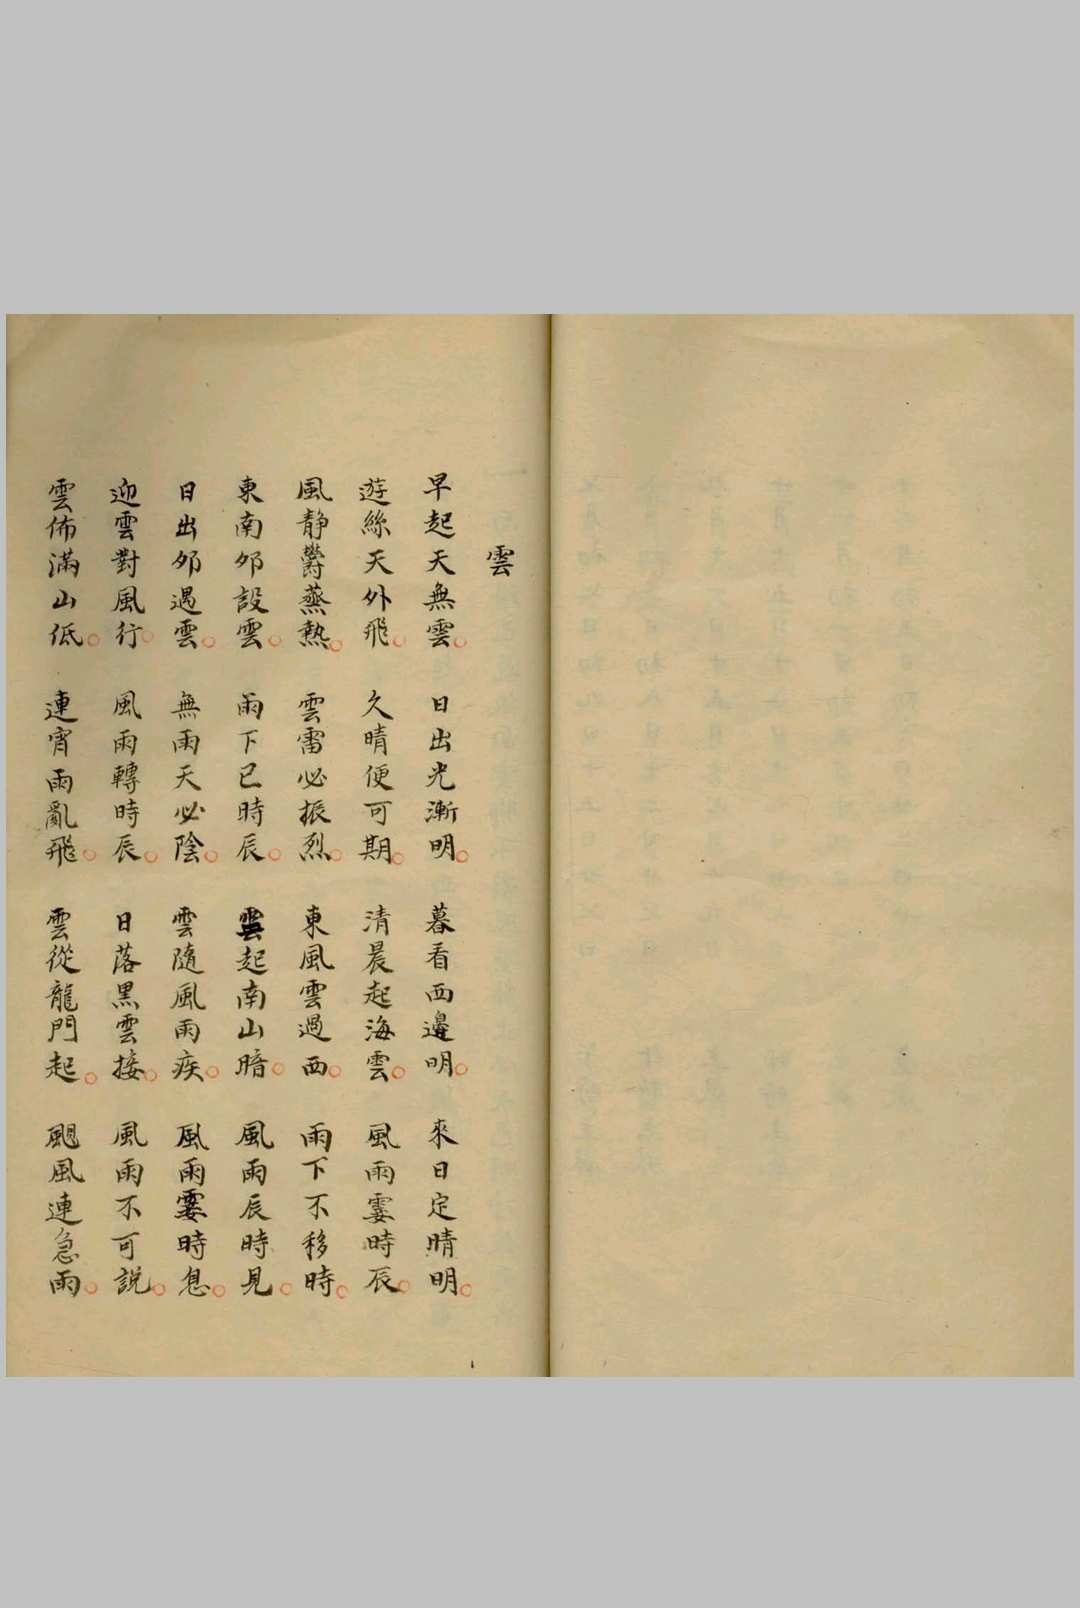 雲
早起天無雲日出光漸明暮看西邊明來日定晴明
遊絲天外飛久晴便可期清晨起海雲風雨霎時辰
風靜欝蒸熱雲雷必振烈東風雲過西雨下不移時
東南夘設雲雨下巳時辰雲起南山暗風雨辰時見
日出夘遇雲無雨天必陰雲隨風雨疾風雨霎時息
迎雲對風行風雨轉時辰日落黑雲接風雨不可說
雲佈滿山低連宵雨亂飛雲從龍門起颶風連急雨